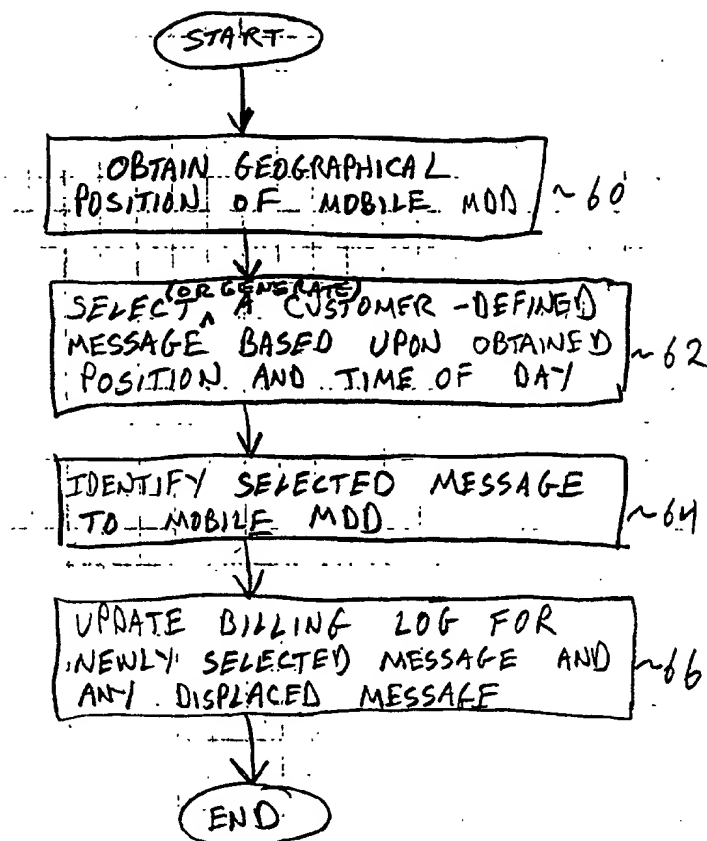 START
OBTAIN GEOGRAPHICAL
POSITION OF MOBILE MDD ~60
(OR GENERATE)
SELECT ^ A CUSTOMER-DEFINED
MESSAGE BASED UPON OBTAINED
POSITION AND TIME OF DAY ~62
IDENTIFY SELECTED MESSAGE
TO MOBILE MDD ~64
UPDATE BILLING LOG FOR
NEWLY SELECTED MESSAGE AND
ANY DISPLACED MESSAGE ~66
END